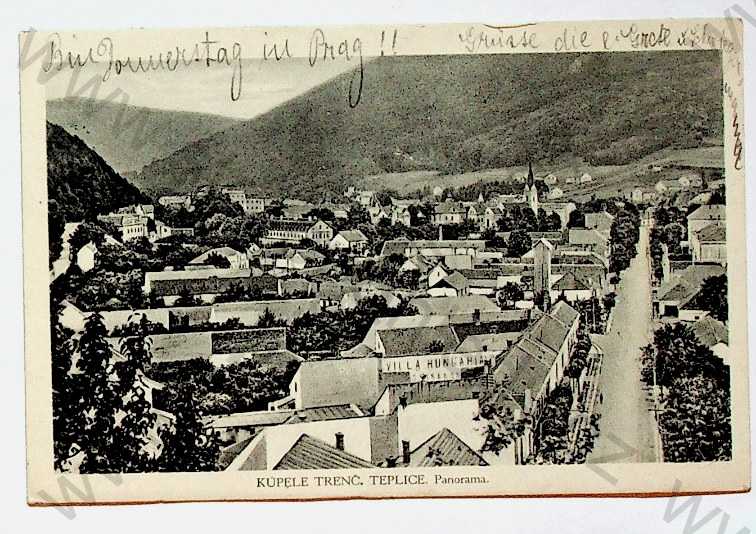 Bin Donnerstag in Prag!!
Grüsse die Grete
VILLA HUNGARIA
KÚPELE TRENČ. TEPLICE. Panorama.